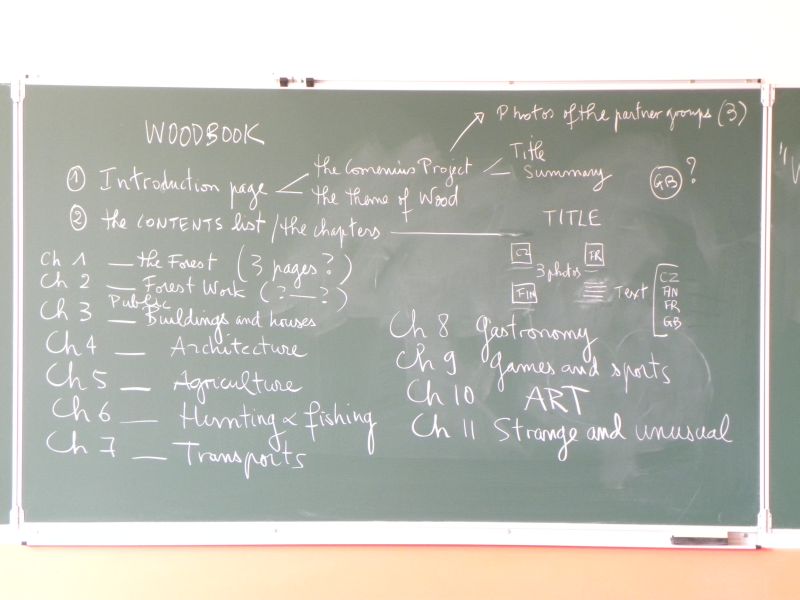 WOODBOOK
Photos of the partner groups (3)
① Introduction page
the Comenius Project
the theme of Wood
Title
Summary
GB ?
② the CONTENTS list / the chapters
TITLE
CZ FR
3 photos
FIN
Text
CZ
FIN
FR
GB
Ch 1 — the Forest (3 pages?)
Ch 2 — Forest Work (?—?)
Ch 3 — Public Buildings and houses
Ch 4 — Architecture
Ch 5 — Agriculture
Ch 6 — Humnting & fishing
Ch 7 — Transports
Ch 8 Gastronomy
Ch 9 Games and sports
Ch 10 ART
Ch 11 Strange and unusual